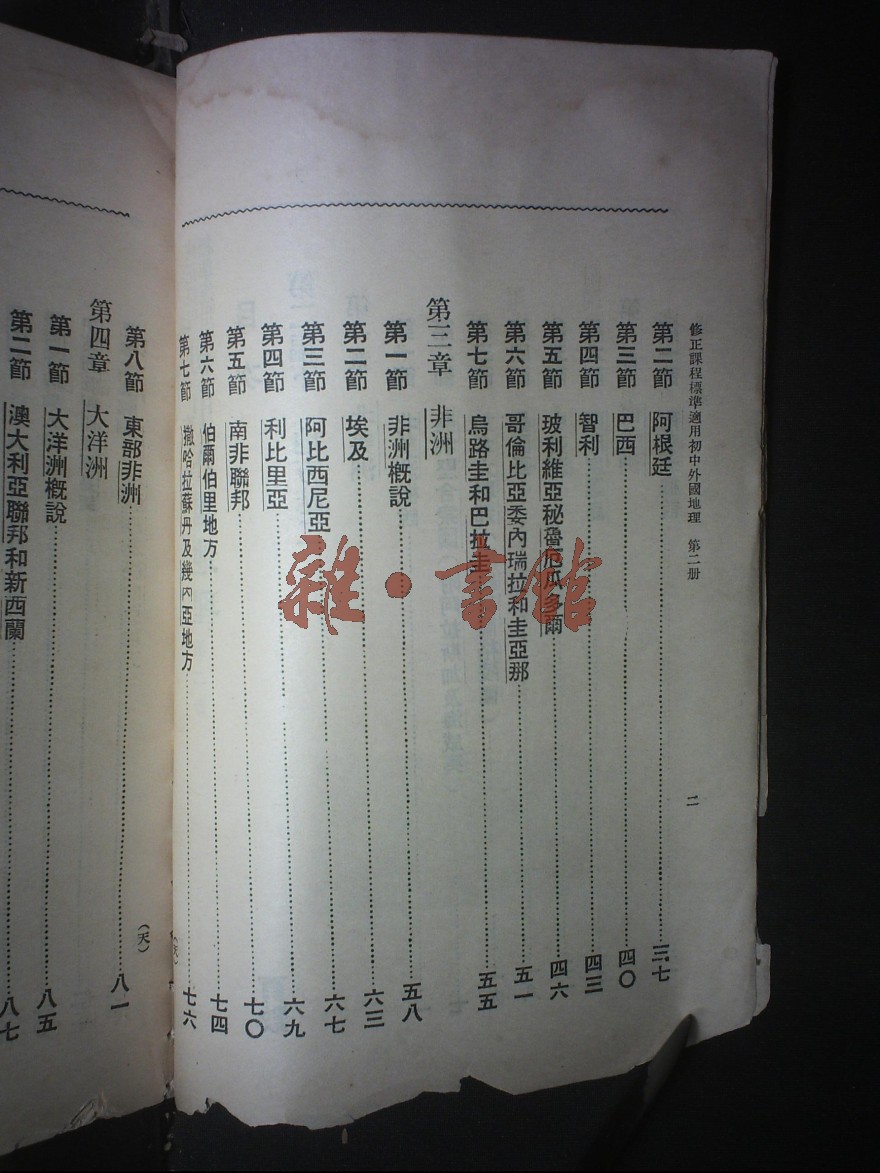 修正課程標準適用初中外國地理 第二册
二
第二節 阿根廷………三七
第三節 巴西………四〇
第四節 智利………四三
第五節 玻利維亞秘魯厄瓜多爾………四六
第六節 哥倫比亞委內瑞拉和圭亞那………五一
第七節 烏路圭和巴拉圭………五五
第三章 非洲
第一節 非洲概說………五八
第二節 埃及………六三
第三節 阿比西尼亞………六七
第四節 利比里亞………六九
第五節 南非聯邦………七〇
第六節 伯爾伯里地方………七四
第七節 撒哈拉蘇丹及幾內亞地方………七六
第八節 東部非洲………八一
(天)
第四章 大洋洲
第一節 大洋洲概說………八五
第二節 澳大利亞聯邦和新西蘭………八七
雜·書館